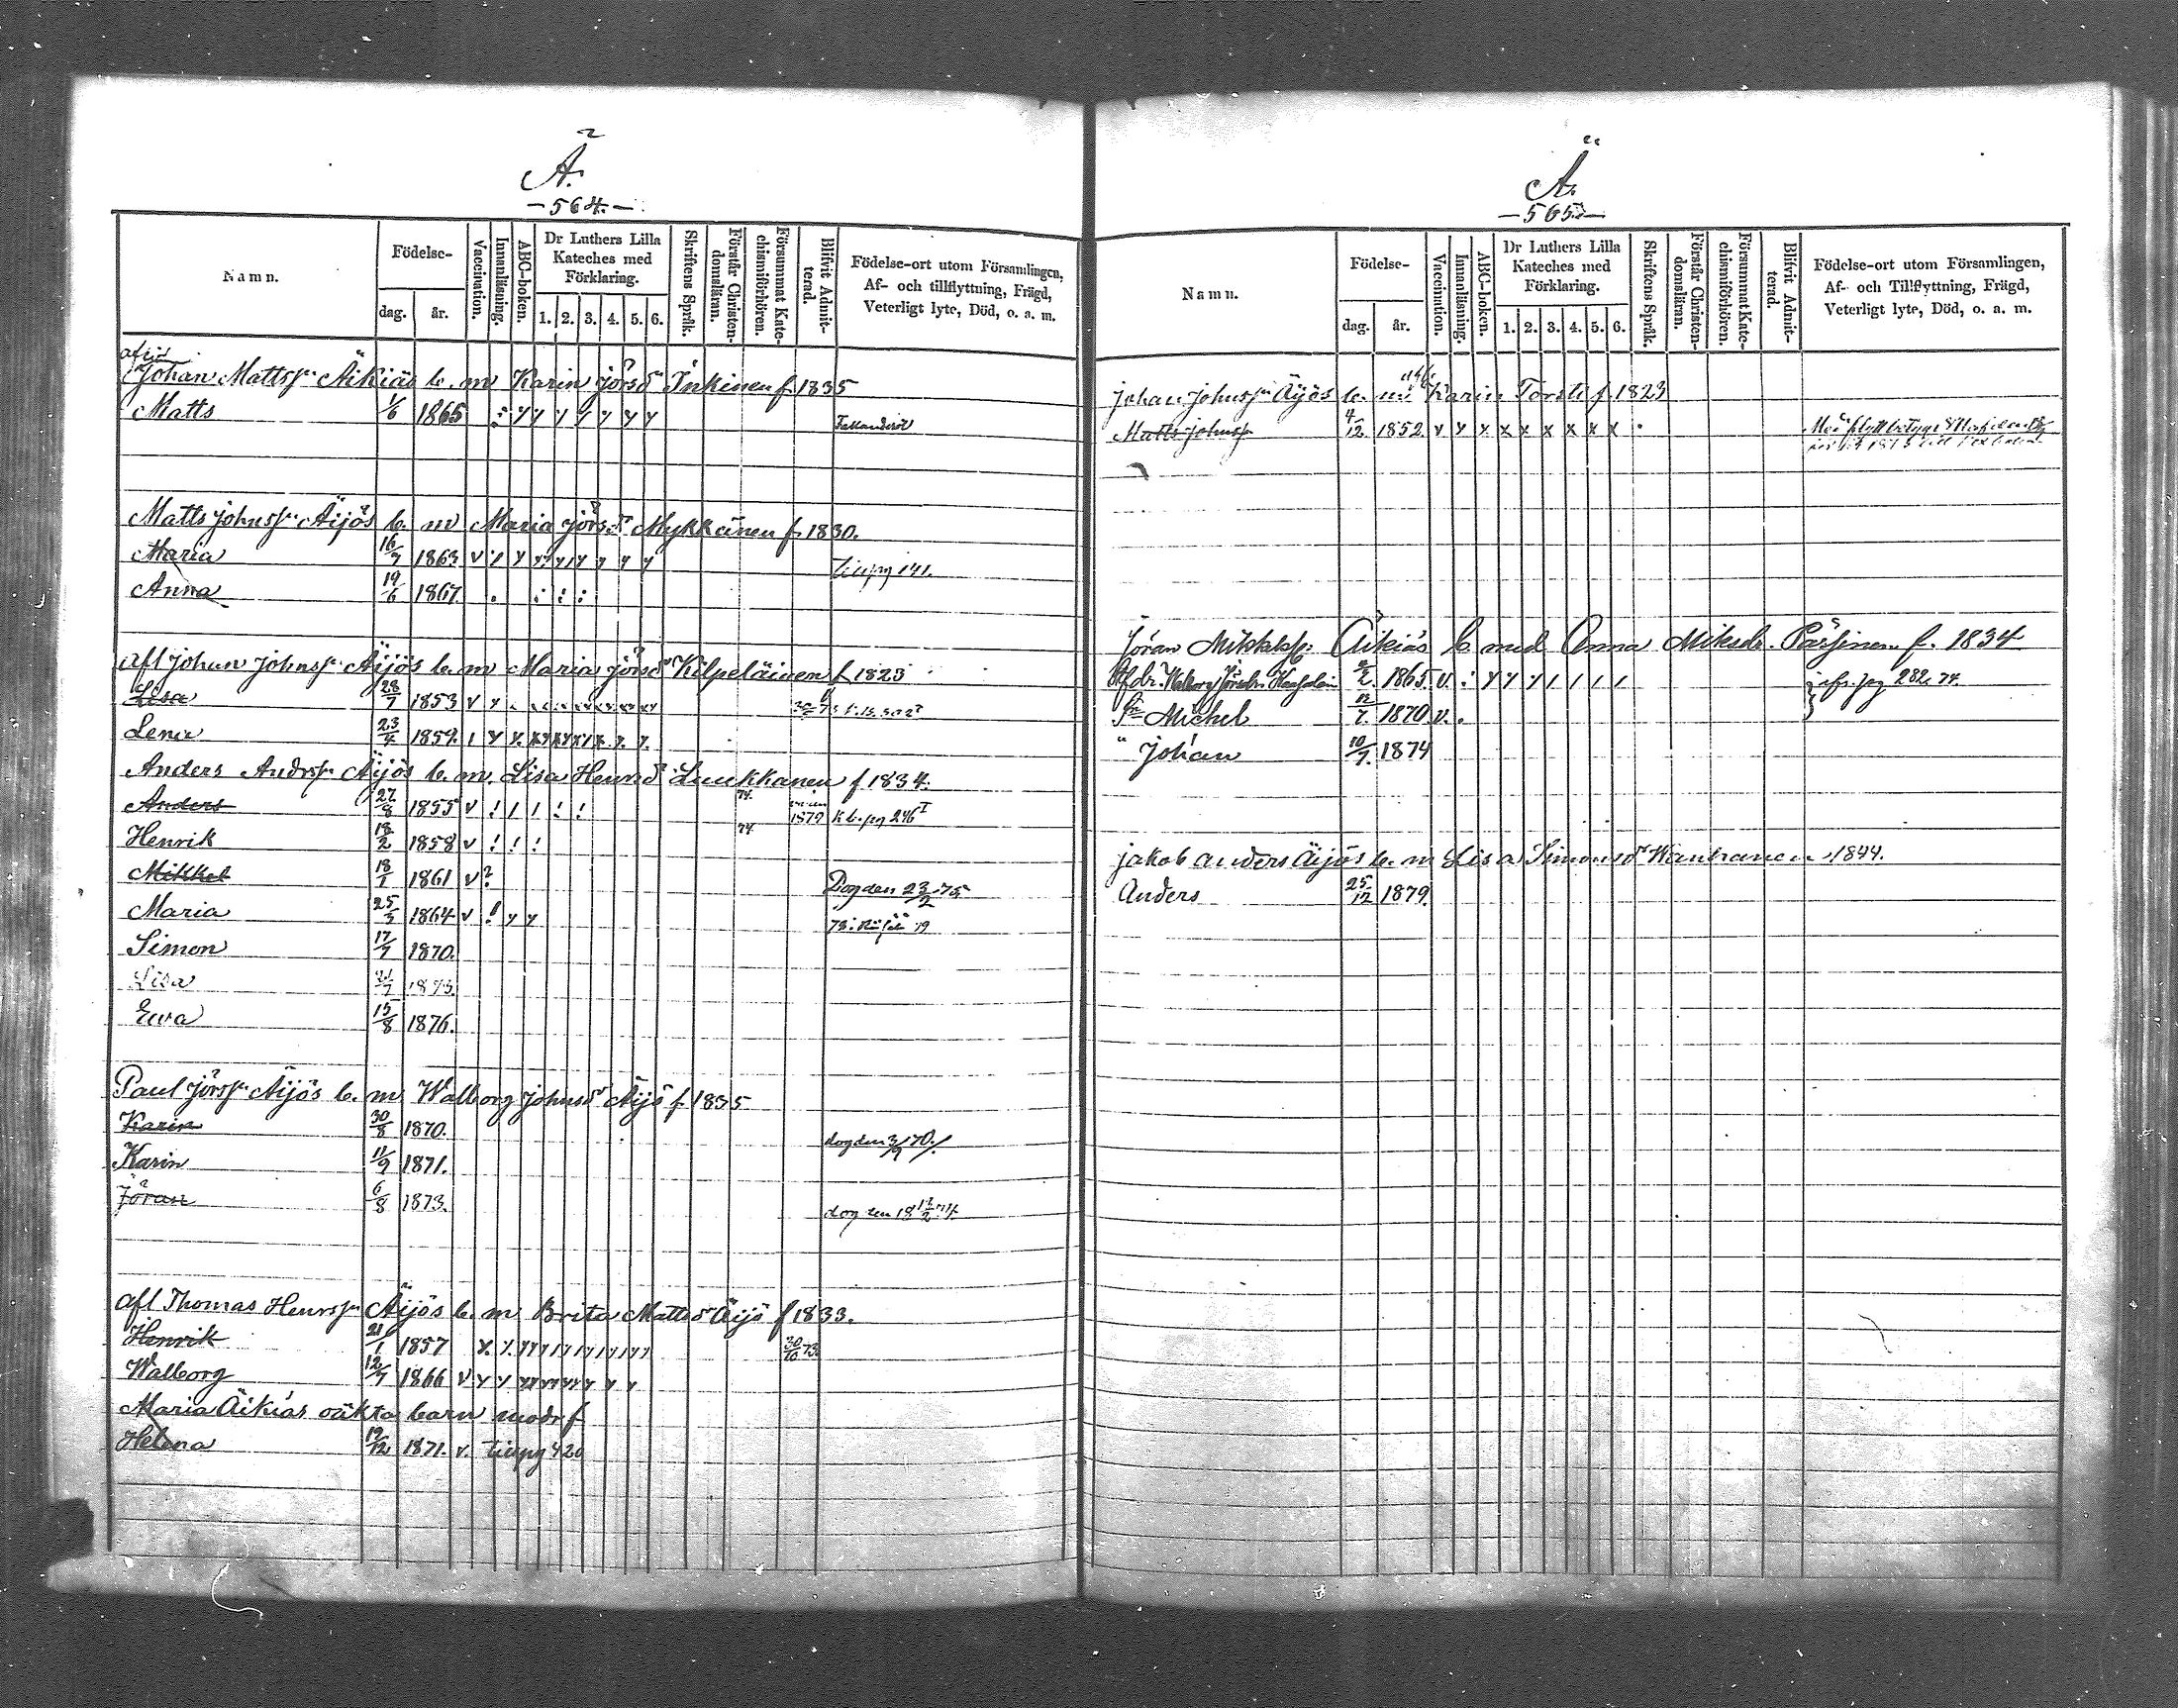 Ä.
-564.-
Namn.
Födelse-
dag.
år.
Vaccination.
Innanläsning.
ABC-boken.
Dr Luthers Lilla
Kateches med
Förklaring.
1. 2. 3. 4. 5. 6.
Skriftens Språk.
Förstår Christen-
domsläran.
Försummat Kate-
chismiförhören.
Blifvit Admit-
terad.
Födelse-ort utom Församlingen,
Af- och tillflyttning, Frägd,
Veterligt lyte, Död, o. a. m.
Johan Mattss Äikiäs b. m Karin Jörsd Inkinen f. 1835
Matts 1/6 1865
Matts Johnss Äijös b. m Maria Jörsd Mykkänen f. 1830.
Maria 16/9 1863 v
Anna 19/6 1867
afl Johan Johnss Äijös b. m Maria Jörsd Kilpeläinen f. 1823
Lisa 28/7 1853 v
Lena 23/4 1859
Anders Andrss Äijös b. m. Lisa Henrsd Luukkanen f 1834.
74.
Anders 27/8 1855 v 1879 k b. pg 246 I
74.
Henrik 18/2 1858 v
Mikkel 18/1 1861 v ? Dog den 23/2 75
Maria 25/3 1864 v
Simon 17/7 1870.
Lisa 1873.
Ewa 15/8 1876.
Paul Jörss Äijös b. m Walborg Johnsd Äijö f. 1835
Karin 30/8 1870. dog den 3/9 70.
Karin 11/9 1871.
Jöran 6/8 1873. dog den
afl Thomas Henrss Äijös b. m Brita Mattsd Äijö f 1833.
Henrik 21/1 1857 30/10 73.
Walborg 12/7 1866 v
Maria Äikiäs oäkta barn modr f
Helena 19/12 1871. v. till pg 420
Ä.
-565.-
Namn.
Födelse-
dag.
år.
Vaccination.
Innanläsning.
ABC-boken.
Dr Luthers Lilla
Kateches med
Förklaring.
1. 2. 3. 4. 5. 6.
Skriftens Språk.
Förstår Christen-
domsläran.
Försummat Kate-
chismiförhören.
Blifvit Admit-
terad.
Födelse-ort utom Församlingen,
Af- och Tillflyttning, Frägd,
Veterligt lyte, Död, o. a. m.
Johan Johnss Äijös b. m. afl. Karin Torsti f 1823
Matts Johnss 4/12 1852. v
Jöran Mikkelss. Äikiäs b. med Anna Miksdr. Pärsinen f. 1834
Walborg Jörsdr 2/2 1865 v. pg 282. 74.
Sn Michel 12/7 1870 v.
" Johan 10/7 1874
Jakob Anders Äijös b. m Lisa Simonsdr 1844.
Anders 25/12 1879.